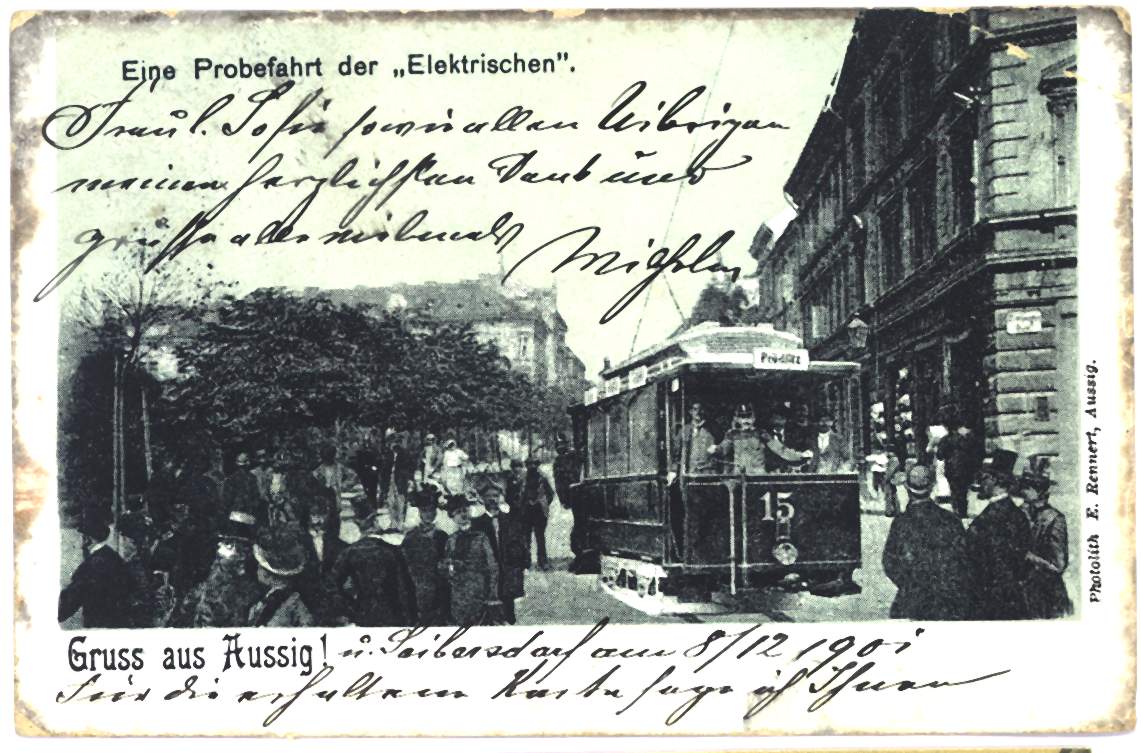 Eine Probefahrt der „Elektrischen”.
Fraul. Sofie sowie allen Uibrigen
meinen herzlichsten Dank und
grüsse alle vielmals Wilhelm
15
Photolith E. Rennert, Aussig.
Gruss aus Aussig! u. Seibersdorf am 8/12 1901
Für die erhaltene Karte sage ich Ihnen